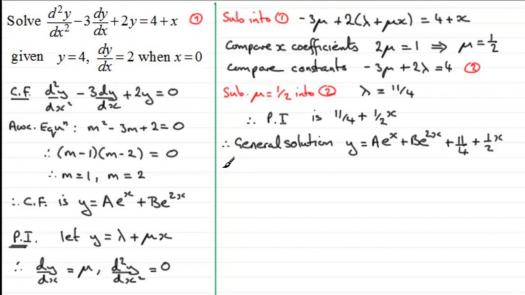 Solve d²y/dx² - 3 dy/dx + 2y = 4 + x ①
given y = 4, dy/dx = 2 when x = 0
C.F. d²y/dx² - 3dy/dx + 2y = 0
Aux. Equⁿ: m² - 3m + 2 = 0
∴ (m-1)(m-2) = 0
∴ m = 1, m = 2
∴ C.F. is y = Ae^x + Be^2x
P.I. let y = λ + μx
∴ dy/dx = μ, d²y/dx² = 0
Sub into ① -3μ + 2(λ + μx) = 4 + x
Compare x coefficients 2μ = 1 ⇒ μ = 1/2
Compare constants -3μ + 2λ = 4 ②
Sub. μ = 1/2 into ② λ = 11/4
∴ P.I is 11/4 + 1/2 x
∴ General solution y = Ae^x + Be^2x + 11/4 + 1/2 x